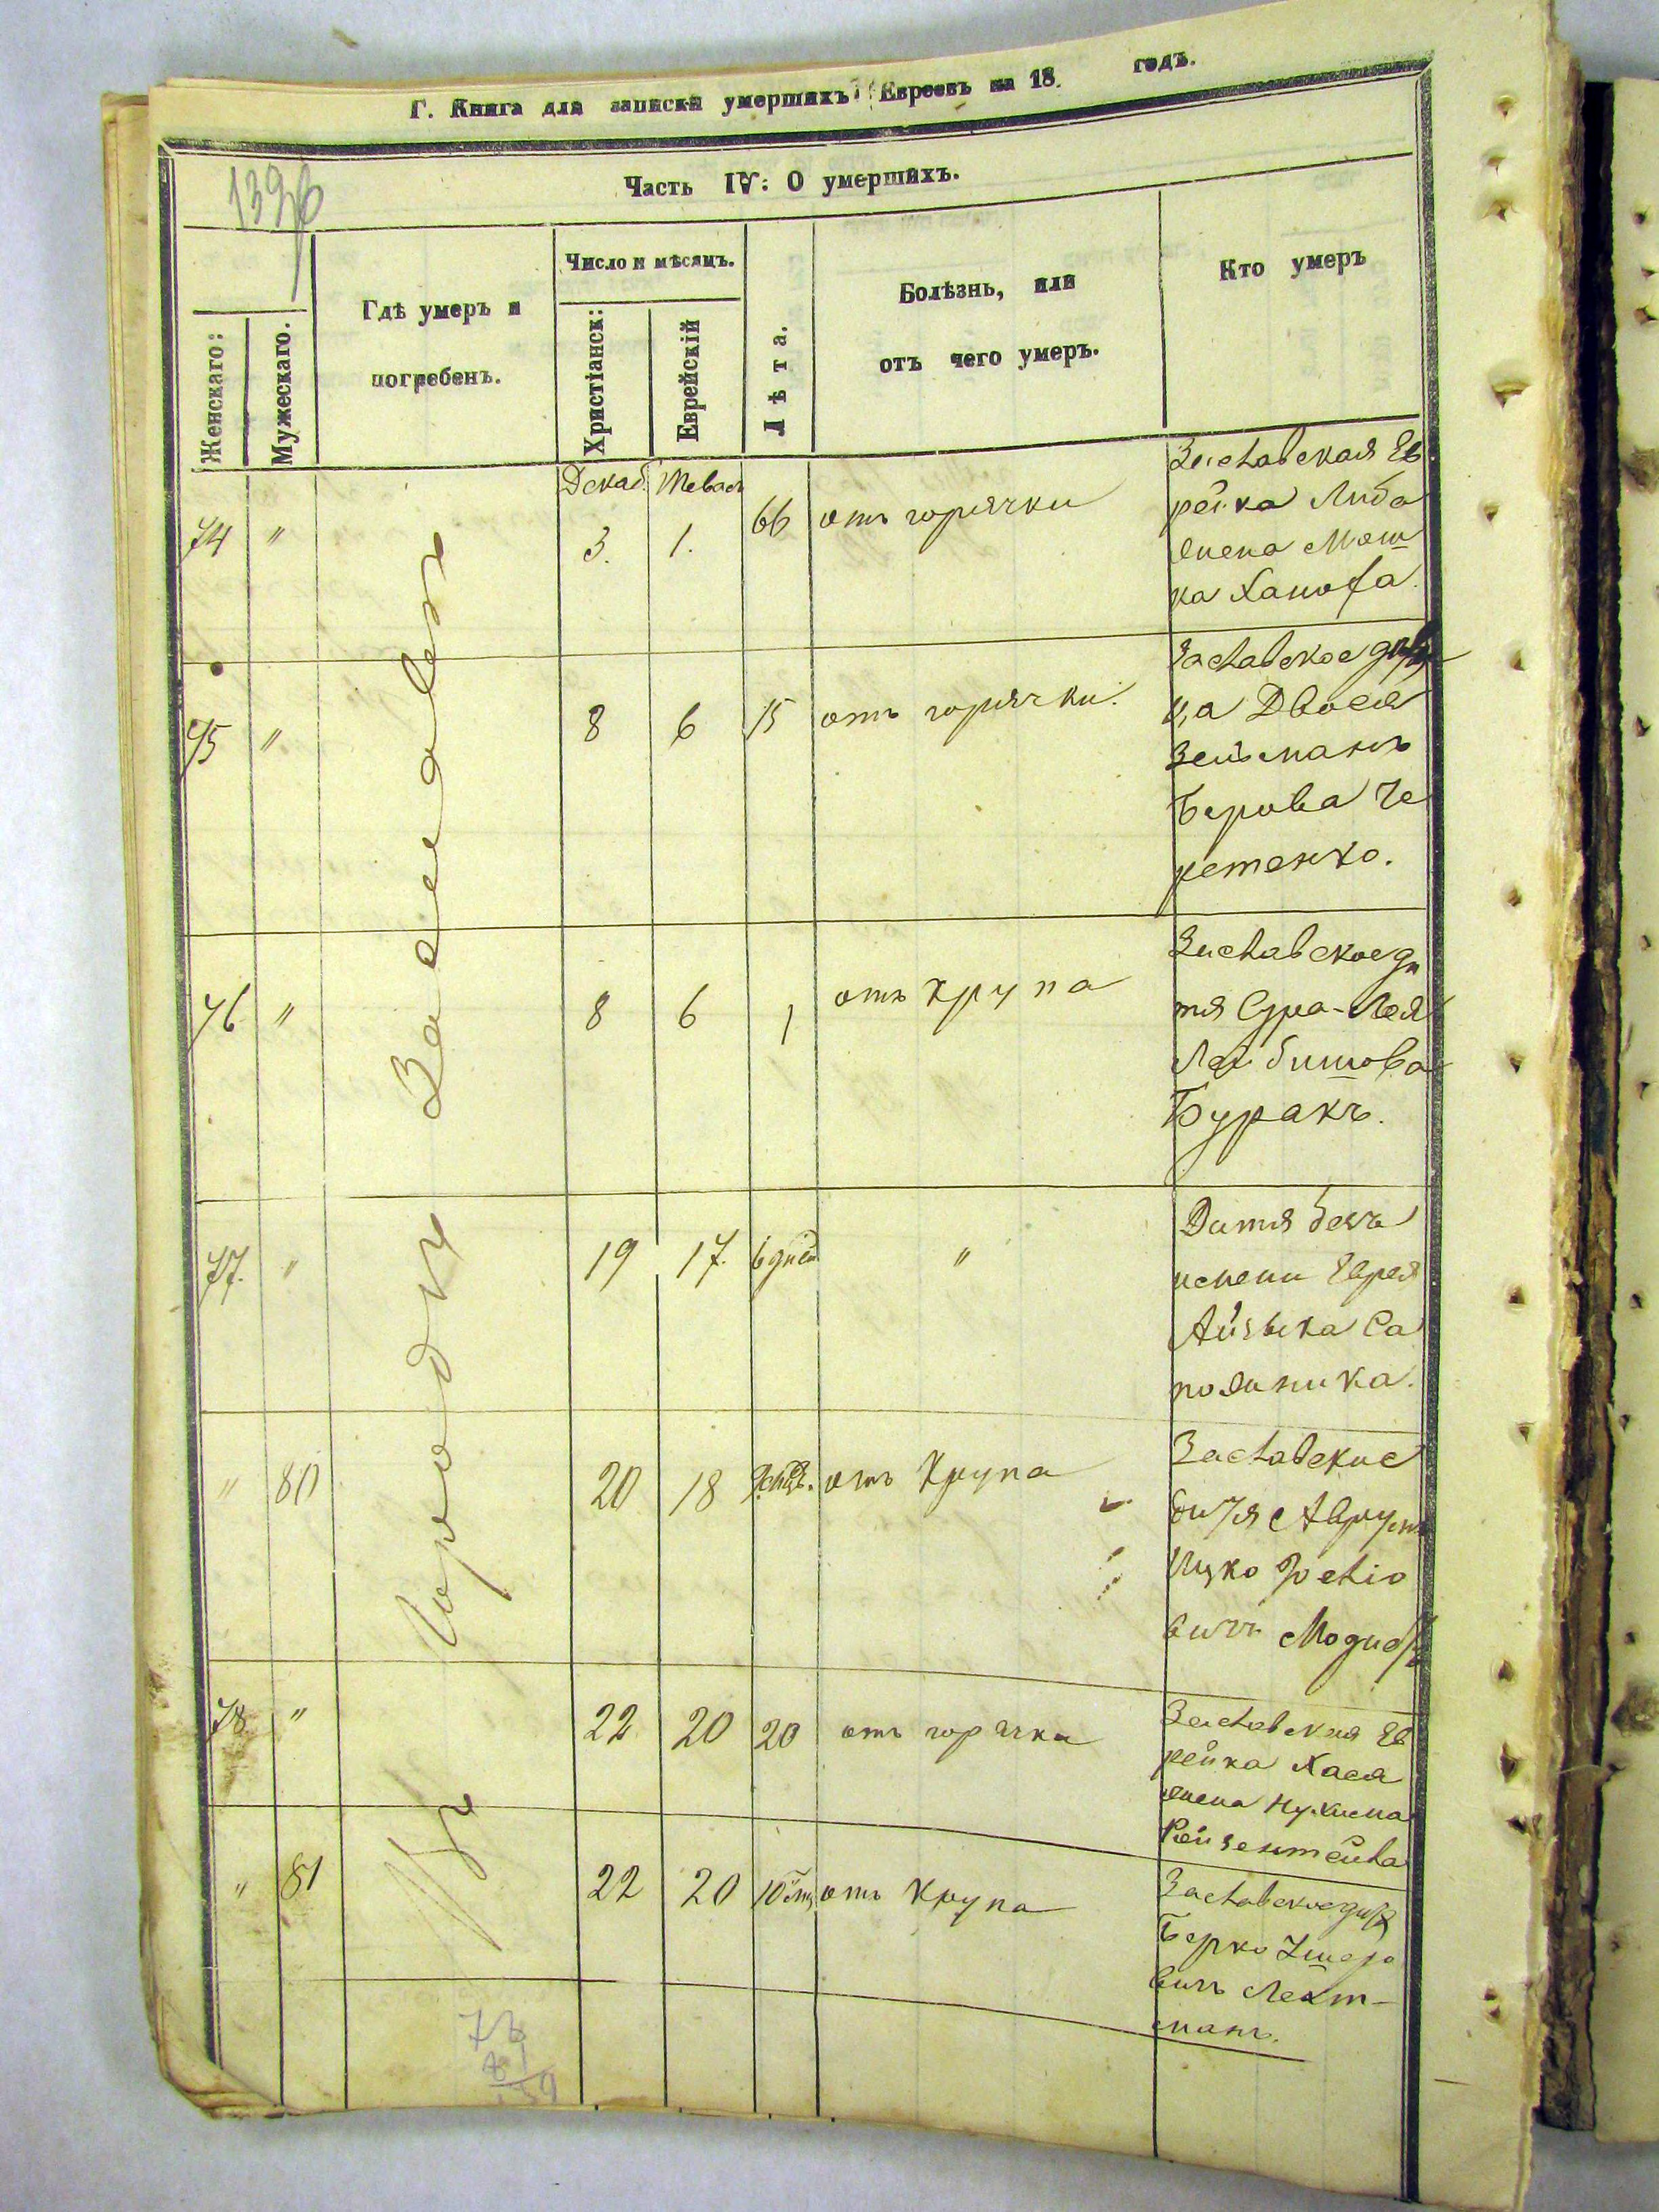 Г. Книга для записки умершихъ Евреевъ на 18 годъ.
139
Часть IV: О умершихъ.
Женскаго:
Мужескаго.
Гдѣ умеръ и
погребенъ.
Число и мѣсяцъ.
Христіанск:
Еврейскій
Лѣта.
Болѣзнь, или
отъ чего умеръ.
Кто умеръ
Въ Городѣ Заславлѣ
Декаб. Тевесъ
74 " 3. 1. 66 отъ горячки
Заславская Ев
рейка Либа
жена Мош
ка
75 " 8 6 15 отъ горячки.
Заславское
ца Двося
Зельманъ
Берова Че
ретенко.
76 " 8 6 1 отъ крупа
Заславское ди
тя Сура-Лея
Лейбишова
Буракъ.
77. " 19 17. 6 дней "
Дитя безъ
имени Еврея
Айзыка Са
пожника.
" 80 20 18 отъ крупа
Заславское
дитя Аврумъ
Ицко
вичъ
78 " 22 20 20 отъ горячки
Заславская Ев
рейка Хася
жена Нухима
" 81 22 20 10 отъ крупа
Заславское дитя
Берко
вичъ Лехт-
манъ.
78
81
159